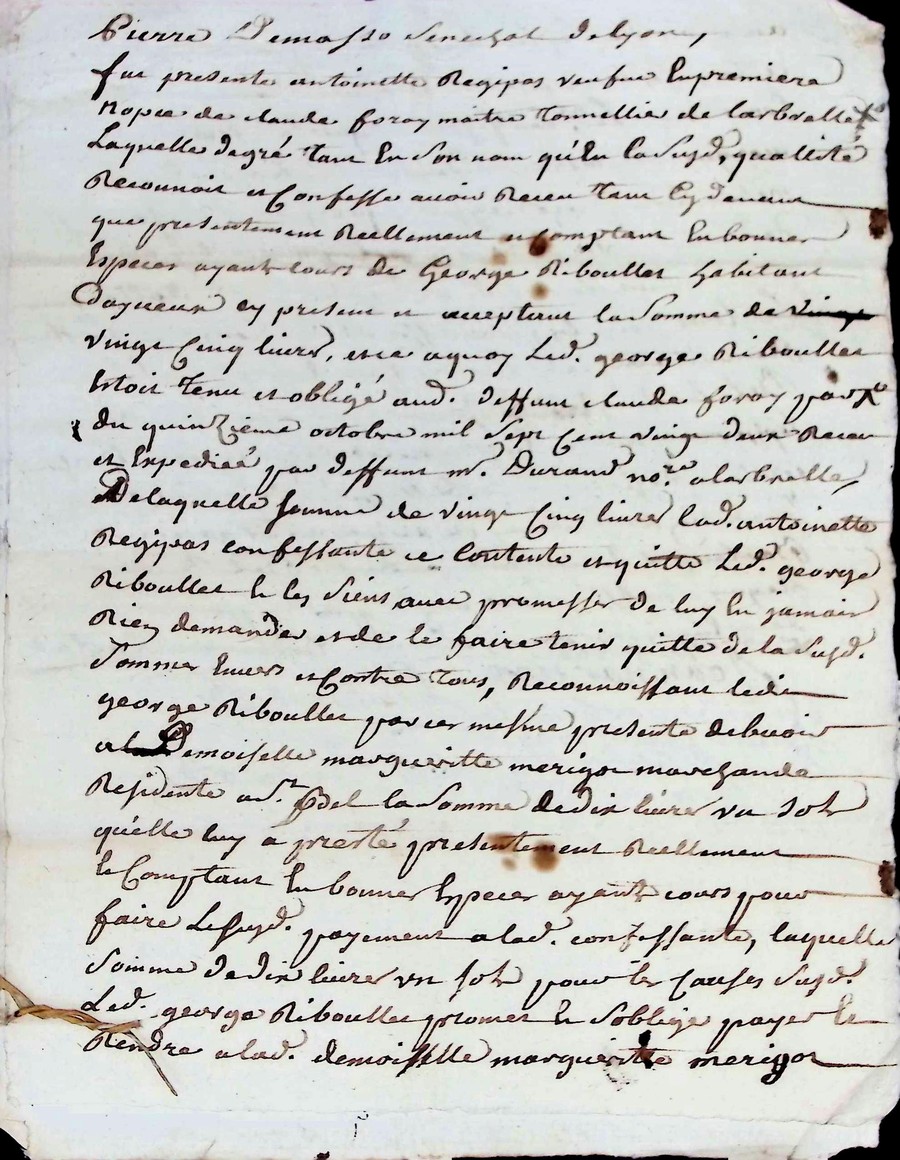 Pierre Demasso Senechal delyon,
fut presente antoinette Regipas veufue Enpremiere
nopce de claude foray maitre tonnellier de larbrelle
Laquelle degré tant En Son nom qu'En la Susd. quallitté
Reconnoit et Confesse avoir Receu tant Cydevant
que presentement Reellement et comptant En bonnes
Especes ayants cours de George Riboullet habitant
Dayveux cy present et acceptant la Somme de vingt
vingt Cinq livres, et ce aquoy Led. george Riboullet
Estoit tenu et obligé aud. deffunt claude foray par
du quinzieme octobre mil Sept Cent vingt deux Receu
et Expedieé par deffunt mr. Durand no.re alarbrelle,
De laquelle Somme de vingt Cinq livres lad. antoinette
Regipas confessante ce Contente et quitte Led. george
Riboullet et les Siens avec promesses de luy En jamais
Rien demander et de le faire tenir quitte de la Susd.
Somme Envers et Contre tous, Reconnoissant ledit
george Riboullet par ces mesme presente debvoir
a la Demoiselle margueritte merigot marchande
Residente a St. Bel la Somme de dix livres un sols
qu'elle luy a presté presentement Reellement
et Comptant En bonnes Especes ayants cours pour
faire Le Susd. payement a lad. confessante, laquelle
Somme de dix livres un sols pour les Causes Susd.
Led. george Riboullet promet et Soblige payer et
Rendre a lad. demoiselle margueritte merigot